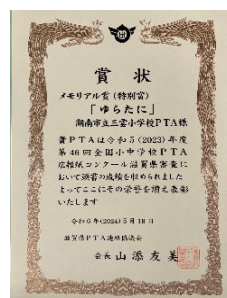 賞状
メモリアル賞(特別賞)
「ゆらたに」
湖南市立三雲小学校PTA様
貴PTAは令和5(2023)年度
第46回全国小中学校PTA
広報紙コンクール滋賀県審査に
おいて頭書の成績を収められました
よってここにその栄誉を讃え表彰
いたします
令和6年(2024)5月18日
滋賀県PTA連絡協議会
会長 山添友美